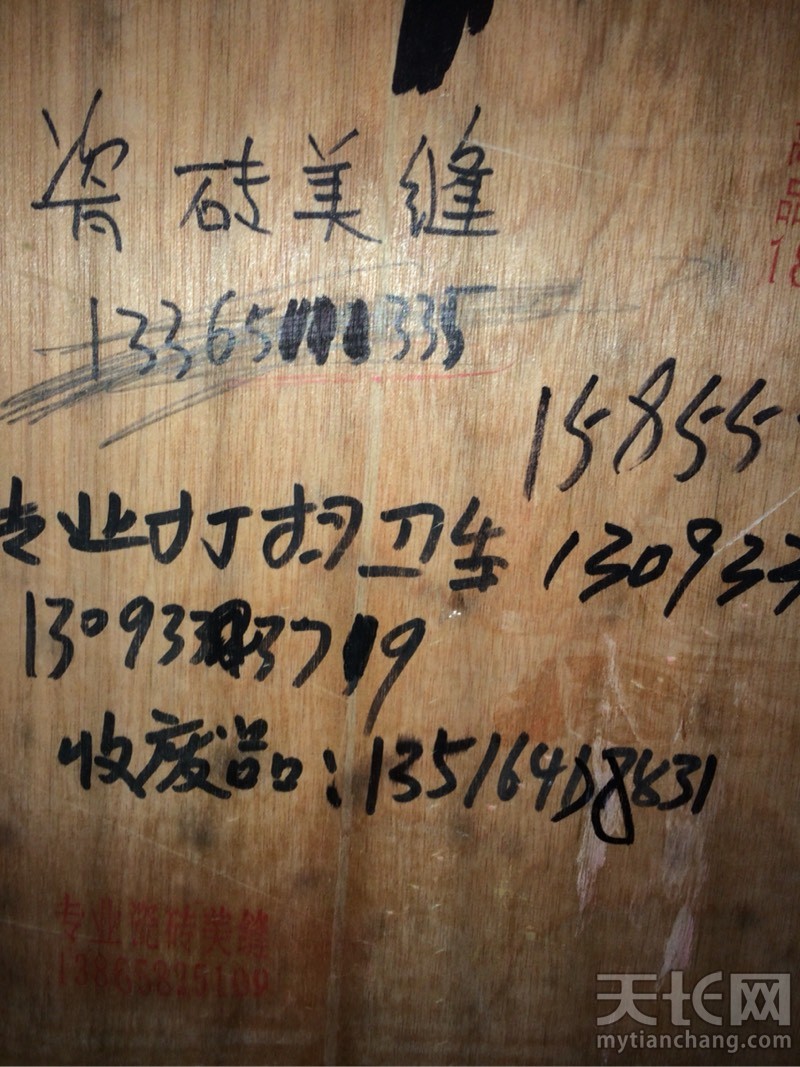 瓷砖美缝
13365111335
15855
专业打扫卫生 13093
1309337
收废品:13516408831
品
18
专业瓷砖美缝
13865825100
天长网
mytianchang.com